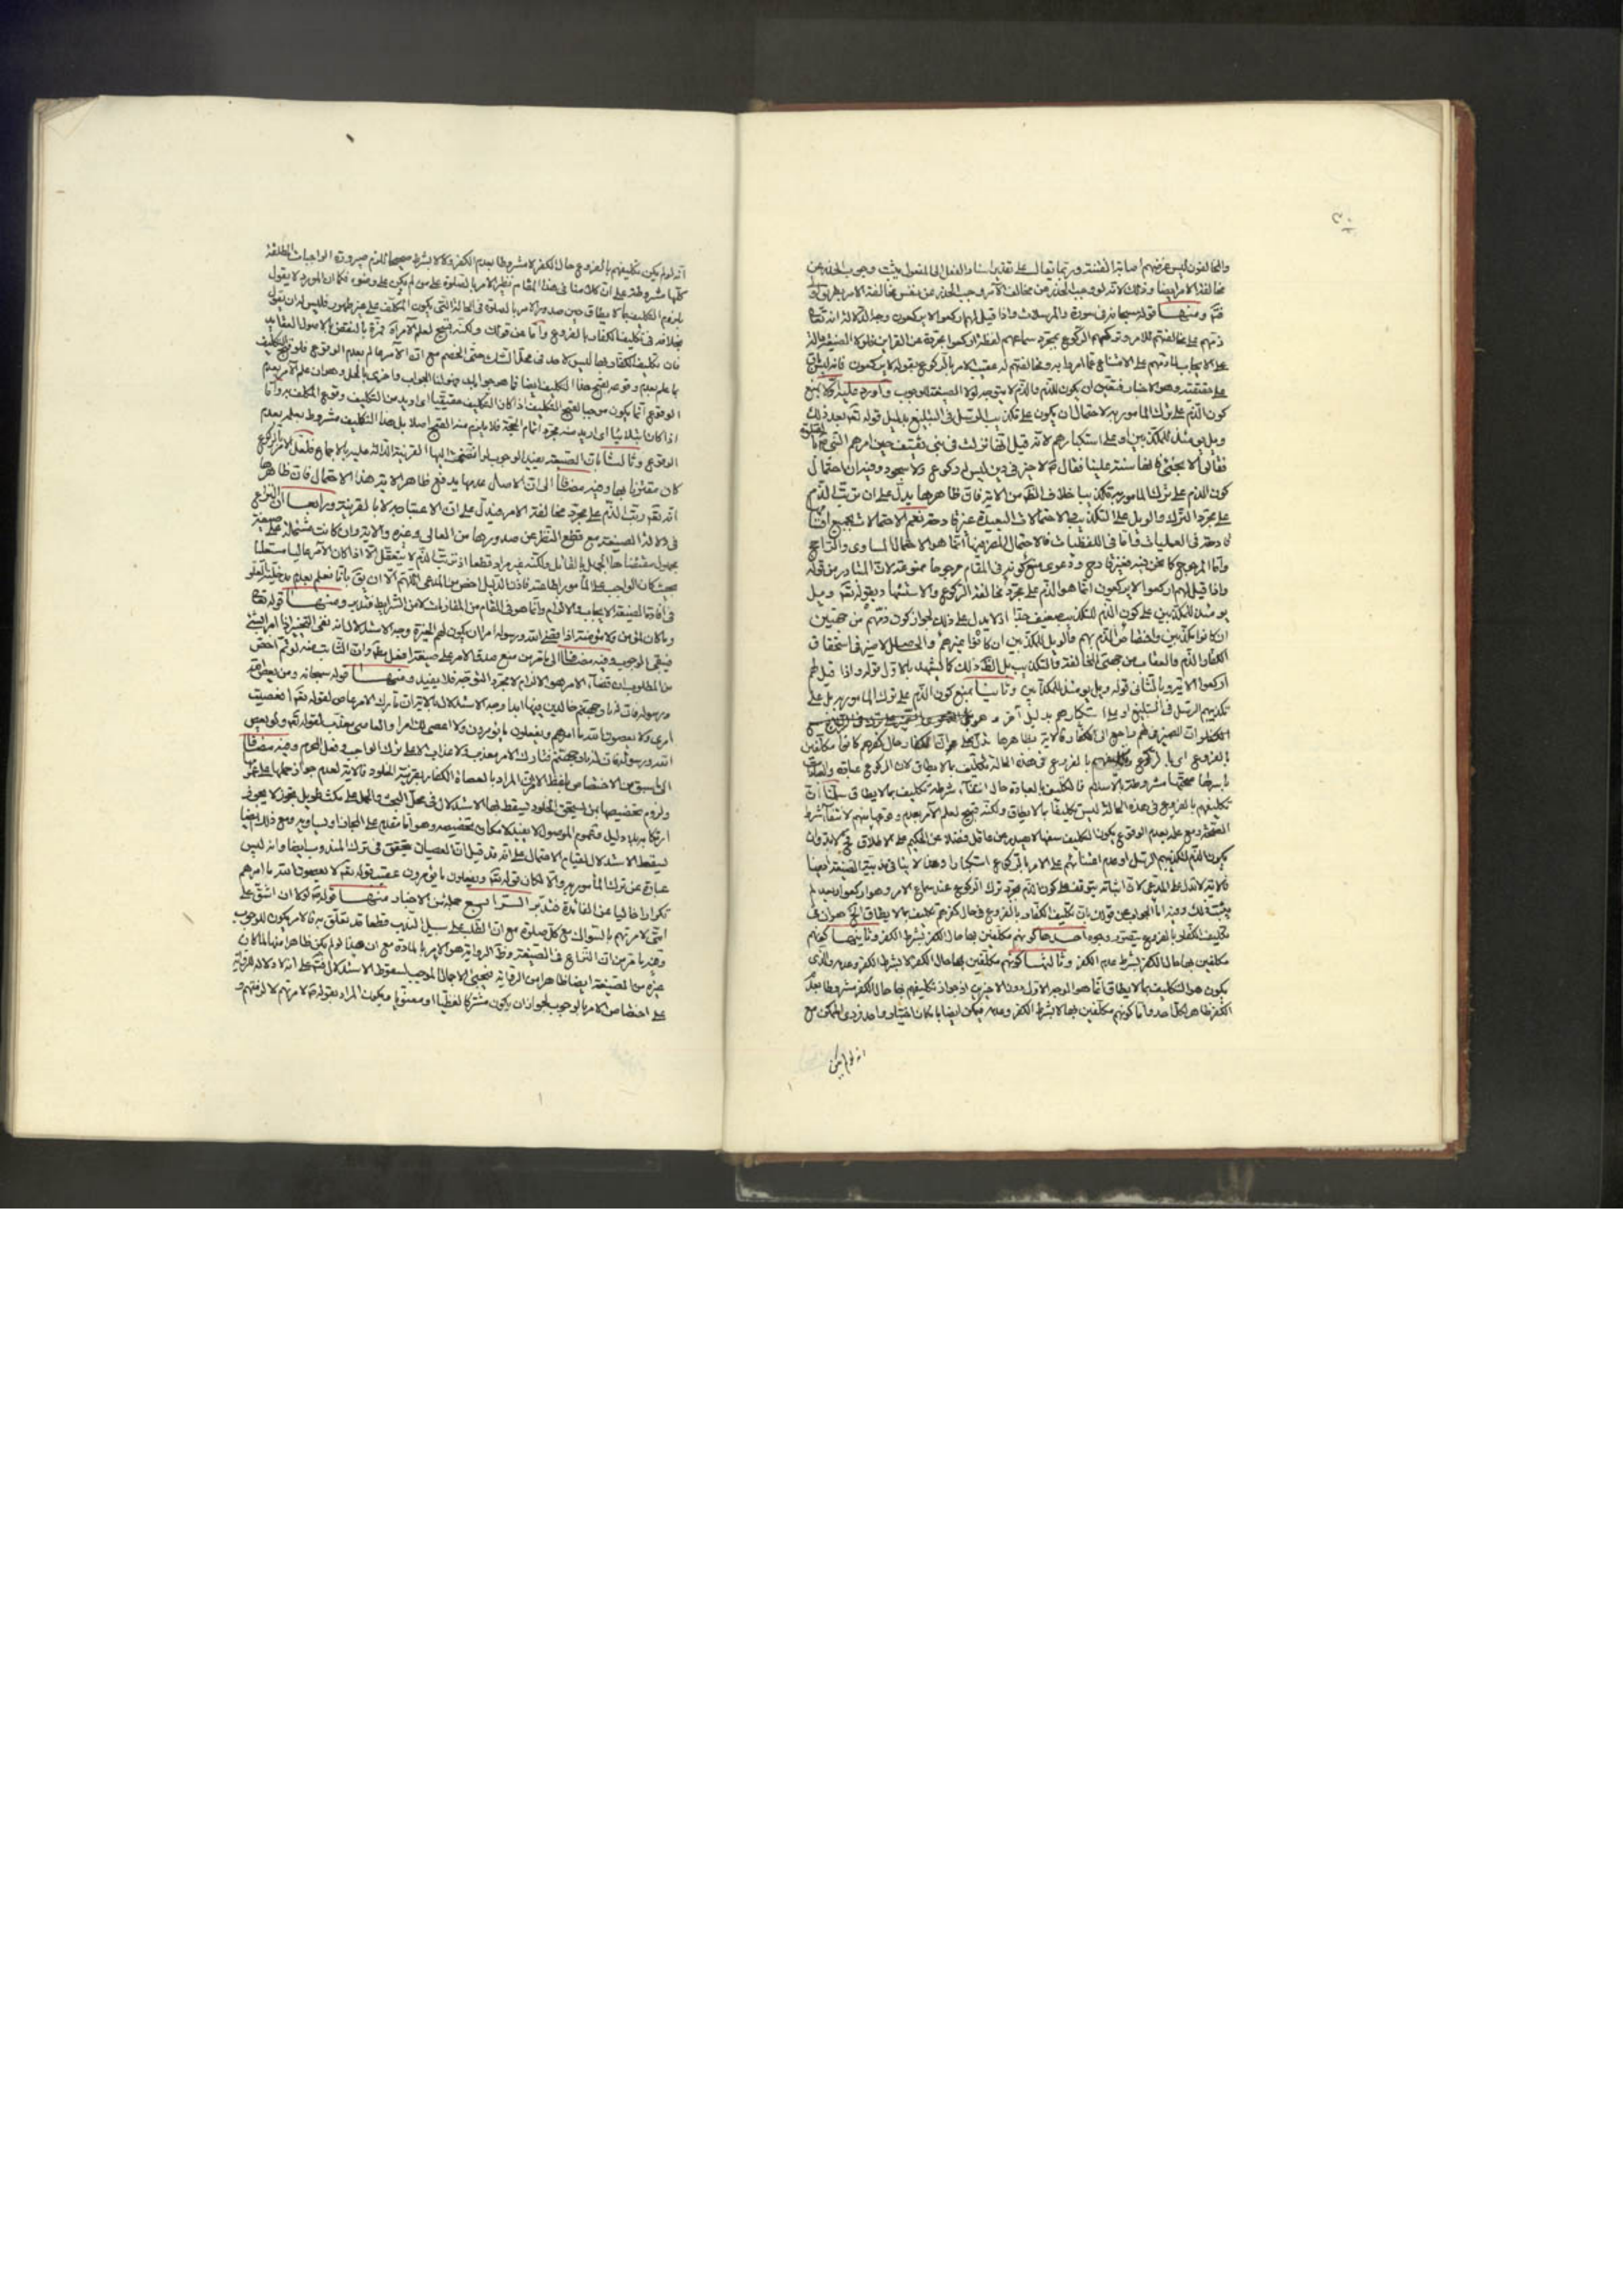 والمخالفون ليس غرضهم اصابة الفتنة وربما يقال على تقدير اسناد الفعل الى المفعول يثبت وجوب الحذر عن
مخالفة الامر ايضا وذلك لانه لو وجب الحذر عن مخالف الامر وجب الحذر عن نفس مخالفة الامر بطريق
ومنها قوله سبحانه في سورة والمرسلات واذا قيل لهم اركعوا لا يركعون وجه الدلالة انه تعالى
ذمهم على مخالفتهم للامر وتركهم الركوع بمجرد سماعهم لفظ اركعوا مجردة عن القراين فلولا الصيغة دالة
على الايجاب لما ذمهم على الامتناع عما امروا به ومخالفتهم له عقيب الامر بالركوع بقوله لا يركعون فانه ليس باق
على حقيقته وهو الاخبار فتعين ان يكون للذم والذم لا يتوجه لولا الصيغة للوجوب واورد عليه اولا بمنع
كون الذم على ترك المامور به لاحتمال ان يكون على تكذيب الرسل في التبليغ بدليل قوله تعالى بعد ذلك
ويل يومئذ للمكذبين او على استكبارهم لانه قيل انها نزلت في بني ثقيف حين امرهم النبي بالصلوة
فقالوا لا ننحني فانها سبة علينا فقال لا خير في دين ليس له ركوع ولا سجود وفيه ان احتمال
كون الذم على ترك المامور به تكذيبا خلاف الظ من الاية فان ظاهرها يدل على ان ترتب الذم
على مجرد الترك والويل على التكذيب والاحتمالات البعيدة غير قادحة نعم الاحتمالات بجميع اقسامها
قادحة في العمليات واما في اللفظيات فالاحتمال المضر فيها انما هو الاحتمال المساوي والراجح
واما المرجوح كما نحن فيه فغير قادح ودعوى منع كونه في المقام مرجوحا ممنوعة لان المتبادر من قوله
واذا قيل لهم اركعوا لا يركعون انما هو الذم على مجرد مخالفة الركوع والاستشهاد بقوله تعالى ويل
يومئذ للمكذبين على كون الذم للتكذيب ضعيف جدا اذ لا يدل على ذلك لجواز كون ذمهم من جهتين
ان كانوا مكذبين واختصاص الذم بهم فالويل للمكذبين ان كانوا غيرهم والحاصل لا ضير في استحقاق
الكفار الذم والعقاب من جهتي المخالفة والتكذيب بل الظ ذلك كما يشهد بالاول قوله واذا قيل لهم
اركعوا الاية وبالثاني قوله ويل يومئذ للمكذبين وثانيا بمنع كون الذم على ترك المامور به بل على
تكذيبهم الرسل في التبليغ او على استكبارهم بدليل اخر وهو
ان الضمير في لهم راجع الى الكفار فالاية بظاهرها تدل على ان الكفار حال كفرهم كانوا مكلفين
بالفروع اي بالركوع وتكليفهم بالفروع في هذه الحالة تكليف بما لا يطاق لان الركوع عبادة والعبادات
باسرها صحتها مشروطة بالاسلام فالتكليف بالعبادة حال انتفاء شرطه تكليف بما لا يطاق سلمنا ان
تكليفهم بالفروع في هذه الحالة ليس تكليفا بما لا يطاق ولكنه قبيح لعلم الآمر بعدم وقوعها منهم لانتفاء شرط
الصحة ومع علمه بعدم الوقوع يكون التكليف سفها لا يصدر عن عاقل فضلا عن الحكيم على الاطلاق فح لا بد وان
يكون الذم لتكذيبهم الرسل او عدم اعتنائهم على الامر بالركوع استكبارا وهذا لا ينافي ندبية الصيغة ايضا
فالاية لا تدل على المدعى لان اثباته يتوقف على كون الذم بمجرد ترك الركوع عند سماع الامر وهو اركعوا وبعد لم
يثبت ذلك وفيه اما الجواب عن قولك بان تكليف الكفار بالفروع في حال كفرهم تكليف بما لا يطاق الخ هو ان في
تكليف الكفار بالفروع يتصور وجوه احدها كونهم مكلفين بها حال الكفر بشرط الكفر وثانيها كونهم
مكلفين بها حال الكفر بشرط عدم الكفر وثالثها كونهم مكلفين بها حال الكفر لا بشرط الكفر وعدمه والذي
يكون هو التكليف بما لا يطاق انما هو الوجه الاول دون الاخيرين اذ جواز تكليفهم بها حال الكفر مشروطا بعدم
الكفر ظاهر لكل احد واما كونهم مكلفين بها لا بشرط الكفر وعدمه فيمكن ايضا بامكان اختيار واحد فردي الممكن مع
انه لو لم يكن
انه لو لم يكن تكليفهم بالفروع حال الكفر لا مشروطا بعدم الكفر ولا لا بشرط صحيحا للزم صيرورة الواجبات المطلقة
كلها مشروطة على ان كلامنا في هذا المقام نظير الامر بالصلوة على من لم يكن على وضوء فكما ان المورد لا يقول
بلزوم التكليف بما لا يطاق حين صدور الامر بالصلوة في الحالة التي يكون المكلف على غير طهور فليس له ان يقول
بخلافه في تكليف الكفار بالفروع واما عن قولك ولكنه قبيح لعلم الآمر
فان تكليف الكفار بها ليس لاحد في محل الشك حتى الخصم مع ان الآمر عالم بعدم الوقوع فلو قبح التكليف
بما علم بعدم وقوعه لقبح هذا التكليف ايضا فما هو جوابه فهو لنا الجواب واخرى بالحل وهو ان علم الآمر بعدم
الوقوع انما يكون موجبا لقبح التكليف اذا كان التكليف حقيقيا اي اريد من التكليف وقوع المكلف به واما
اذا كان ابتلائيا اي اريد منه مجرد اتمام الحجة فلا يلزم منه القبح اصلا بل هذا التكليف مشروط بعلمه بعدم
الوقوع وثالثا بان الصيغة يفيد الوجوب لو انضمت اليها القرينة الدالة عليه بالاجماع فلعل الامر بالركوع
كان مقترنا بها وفيه مضافا الى ان الاصل عدمها يدفع ظاهر الاية هذا الاحتمال فان ظاهرها
انه تعالى رتب الذم على مجرد مخالفة الامر فيدل على ان الاعتبار به لا بالقرينة ورابعا ان النزاع
في دلالة الصيغة مع قطع النظر عن صدورها من العالي وغيره والاية وان كانت مشتملة على صيغة
بحيث كان الواجب على المأمور اطاعته فاذن الدليل اخص من المدعى اللهم الا ان يق بانا نعلم بعدم مدخلية العلو
في افادة الصيغة الايجاب والالزام وانما هو في المقام من المقارنات لا من الشرايط فتدبر ومنها قوله تعالى
وما كان لمؤمن ولا مؤمنة اذا قضى الله ورسوله امرا ان يكون لهم الخيرة وجه الاستدلال انه نفى التخيير اذا امر بشيء
فيبقى الوجوب وفيه مضافا الى ما مر من منع صدق الامر على صيغة افعل ان الثابت منه لو تم اخص
من المطلوب ان قضاء الامر هو الالزام لا مجرد التوجه فلا يفيد ومنها قوله سبحانه ومن يعص الله
ورسوله فان له نار جهنم خالدين فيها ابدا وجه الاستدلال بالاية ان تارك الامر عاص لقوله تعالى افعصيت
امري ولا يعصون الله ما امرهم ويفعلون ما يؤمرون ولا اعصي لك امرا والعاصي معذب لقوله تعالى ومن يعص
الله ورسوله فان له نار جهنم فتارك الامر معذب ولا عذاب الا على ترك الواجب وفعل المحرم وفيه مضافا
الى ما سبق من الاختصاص بلفظ الامر ان المراد بالعصاة الكفار بقرينة الخلود فالاية لعدم جواز حملها على
ولزوم تخصيصها بمن يستحق الخلود ليسقط بها الاستدلال في محل البحث والحمل على مكث طويل تجوز لا يجوز
ارتكابه بلا دليل وعموم الموصول لا يفيد لامكان تخصيصه وهو اما مقدم على المجاز او يساويه ومع ذلك ايضا
ليسقط الاستدلال لقيام الاحتمال على انه قد قيل ان العصيان يتحقق في ترك المندوب ايضا وانه ليس
عبارة عن ترك المأمور به والا لكان قوله تعالى ويفعلون ما يؤمرون عقيب قوله تعالى لا يعصون الله ما امرهم
تكرارا خاليا عن الفائدة فتدبر الرابع جملة من الاخبار منها قوله لولا ان اشق على
امتي لامرتهم بالسواك مع كل صلوة مع ان الطلب على سبيل الندب قطعا قد تعلق به فالامر يكون للوجوب
وفيه ما مر من ان النزاع في الصيغة وظ الرواية هو الامر بالمادة مع ان هذا لو لم يكن ظاهرا منها لما كان
غيره من الصيغة ايضا ظاهرا من الرواية فيجيء الاجمال الموجب لسقوط الاستدلال فتم على انه لا دلالة للرواية
على اختصاص الامر بالوجوب لجواز ان يكون مشتركا لفظيا او معنويا ويكون المراد بقوله لامرتهم لالزمتهم و